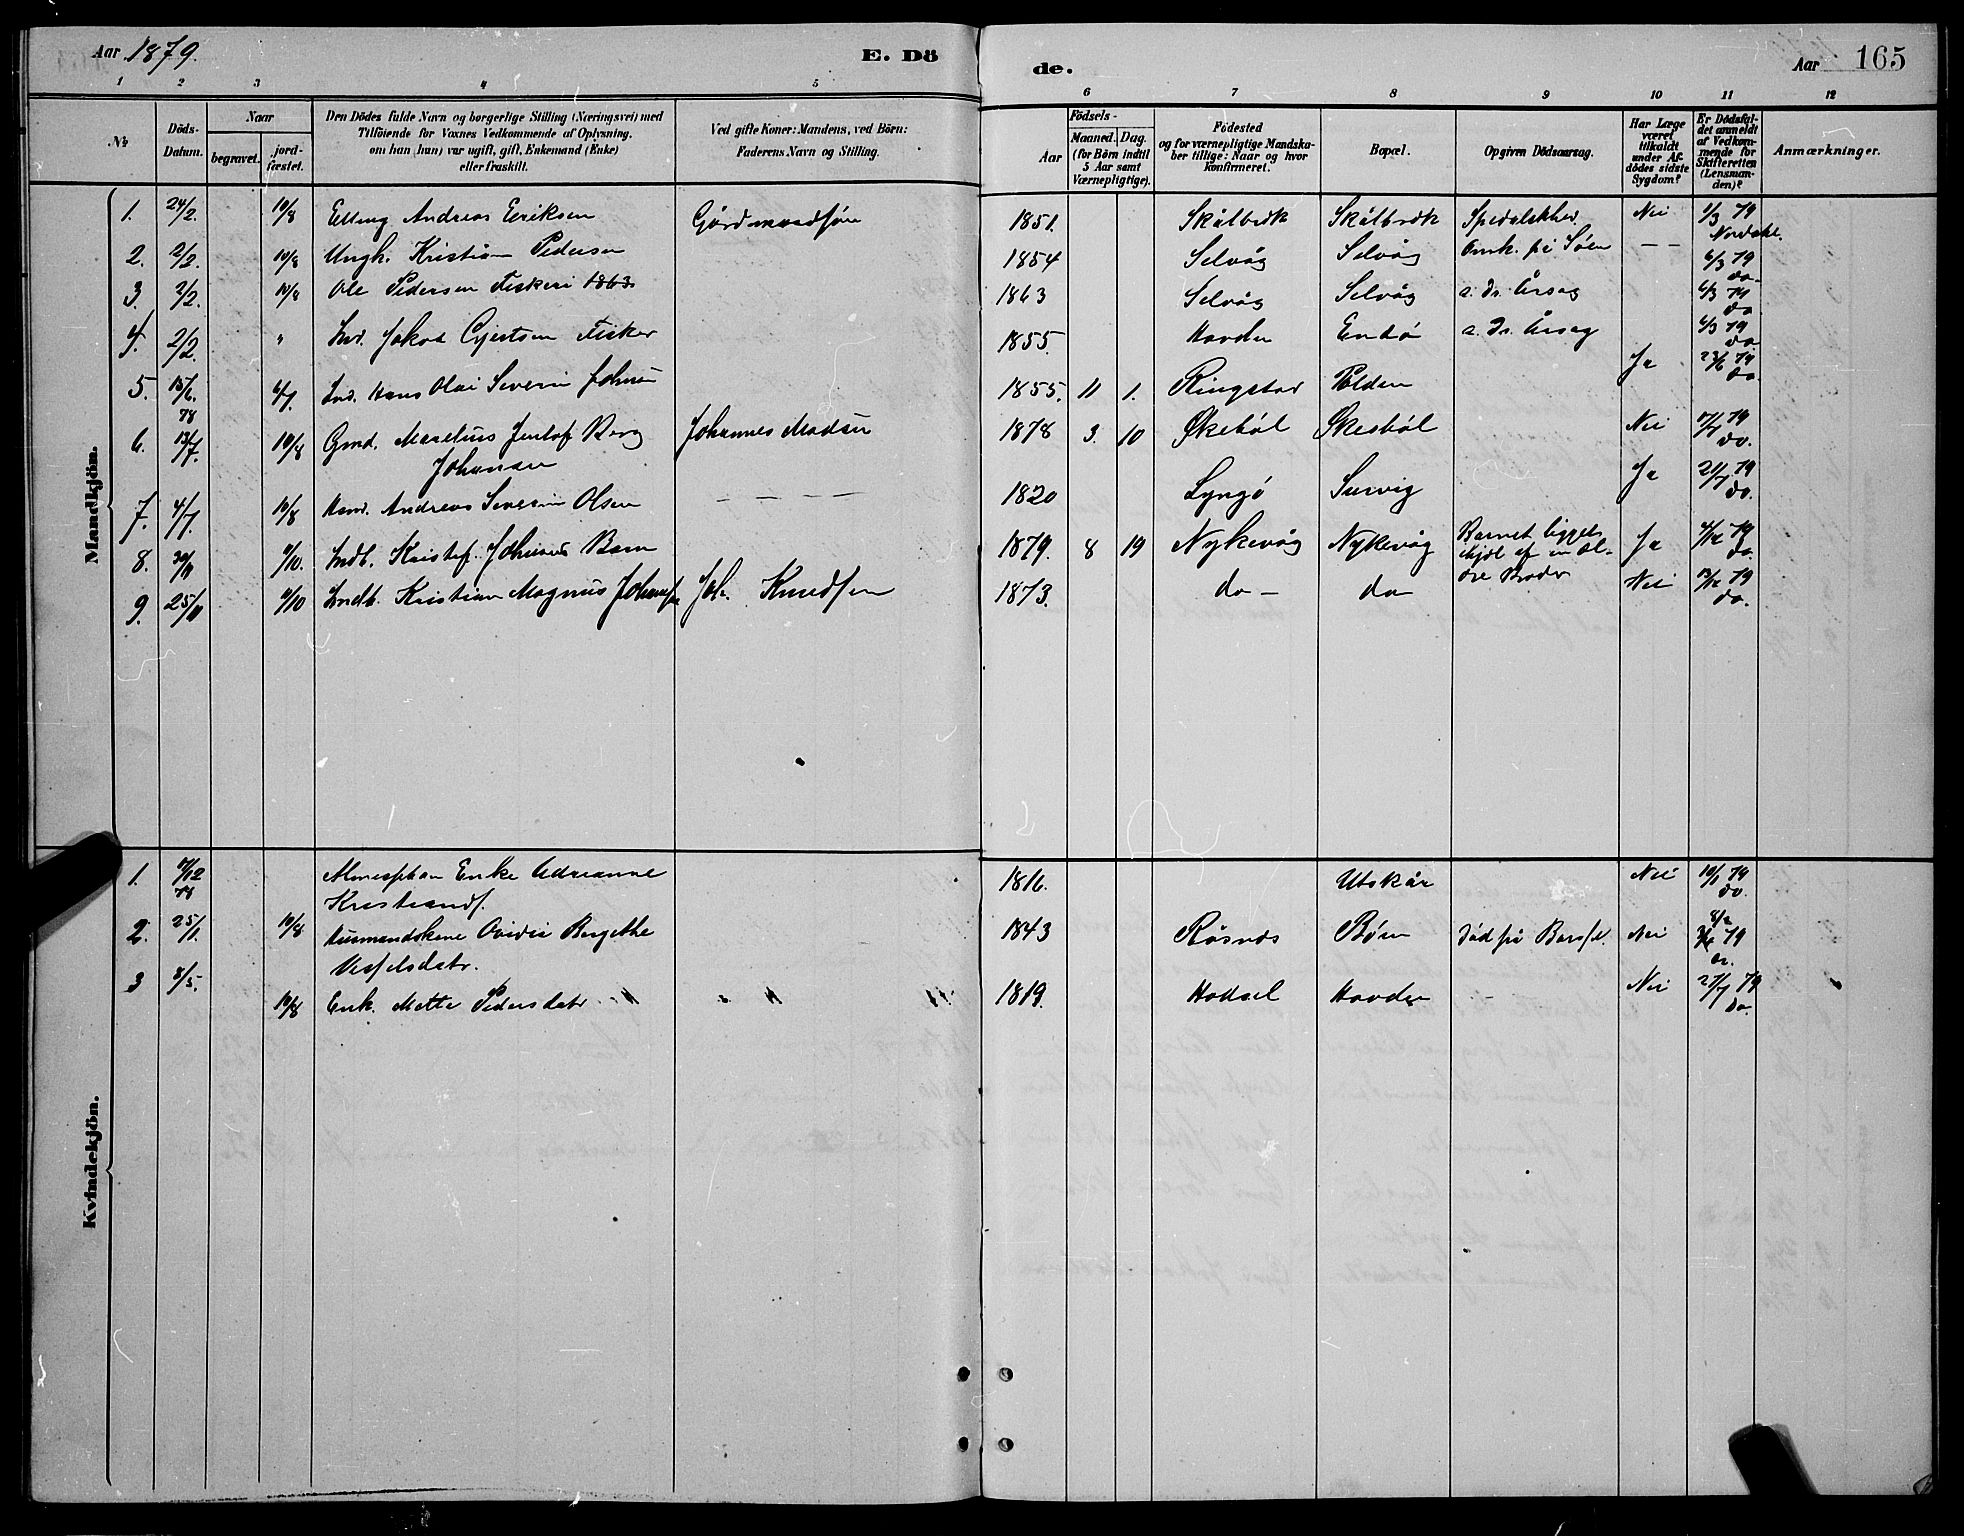 Aar 1879.
E. Döde.
Aar
165
1 2 3 4 5 6 7 8 9 10 11 12
No
Döds-Datum.
Naar
begravet.
jord-fæstet.
Den Dödes fulde Navn og borgerlige Stilling (Næringsvei) med
Tilföiende for Voxnes Vedkommende af Oplysning,
om han (hun) var ugift, gift, Enkemand (Enke)
eller fraskilt.
Ved gifte Koner: Mandens, ved Börn:
Faderens Navn og Stilling.
Födsels-
Aar
Maaned. Dag.
(for Börn indtil
5 Aar samt
Værnepligtige).
Födested
og for værnepligtige Mandska-
ber tillige: Naar og hvor
konfirmeret.
Bopæl.
Opgiven Dödsaarsag.
Har Læge
været
tilkaldt
under Af-
dödes sidste
Sygdom?
Er Dödsfal-
det anmeldt
af Vedkom-
mende for
Skifteretten
(Lensman-
den)?
Anmærkninger.
Mandkjön.
1. 24/2. 10/8 Elling Andreas Eriksen 1851. Skålbrek Skålbrek Nei 1/3 79
2. 2/2. 10/8 Ungk. Kristian Pedersen 1854 Selvåg Selvåg Omk. på Søen — — 6/3 79 do
3. 2/2. 10/8 Ole Pedersen Fiskeri 1863 1863 Selvåg Selvåg a. ds. Årsag 6/3 79 do
4. 2/2. " Ind. Jakob Gjertsen Fisker 1855. Hovden a. ds. Årsag 6/3 79 do
5. 15/6. 78 6/7. Ind. Hans Olai Severin Johnsen 1855. 11 1. Ringstad Polden Ja 23/6 79 do.
6. 13/7. 10/8 Gmd. Marelius Jentof Berg Johannes Madsen 1878 3. 10 Økebøl Skesbøl Nei 17/7 79 do.
Johansen
7. 4/7. 10/8 Andreas Severin Olsen — — — — 1820 Lyngø Ja 21/7 79 do.
8. 30/11 /10. Indb. Kristof. Barn 1879. 8 19 Nykevåg Nykevåg Barnet ligget Ja 4/12 79 do.
ihjel af en æl-
dre Broder
9. 25/11 /10 Indb. Kristian Magnus Joh. Knudsen 1873. do — do Nei 13/12 79 do.
Kvindekjön.
1. 17/12 78 Enke Adrianne 1816. Utskår Nei 10/1 79 do.
Kristiansd.
2. 25/1. 10/8 Husmandskone Ovidia Bergethe 1843 Råsnes Bøen Død på Barsel. Nei 79 do.
Vesselsdatr.
3 8/5. 10/8 Enk. Mette Pedersdatr " " " 1819. Hadsel Hovden Nei 21/7 79 do.